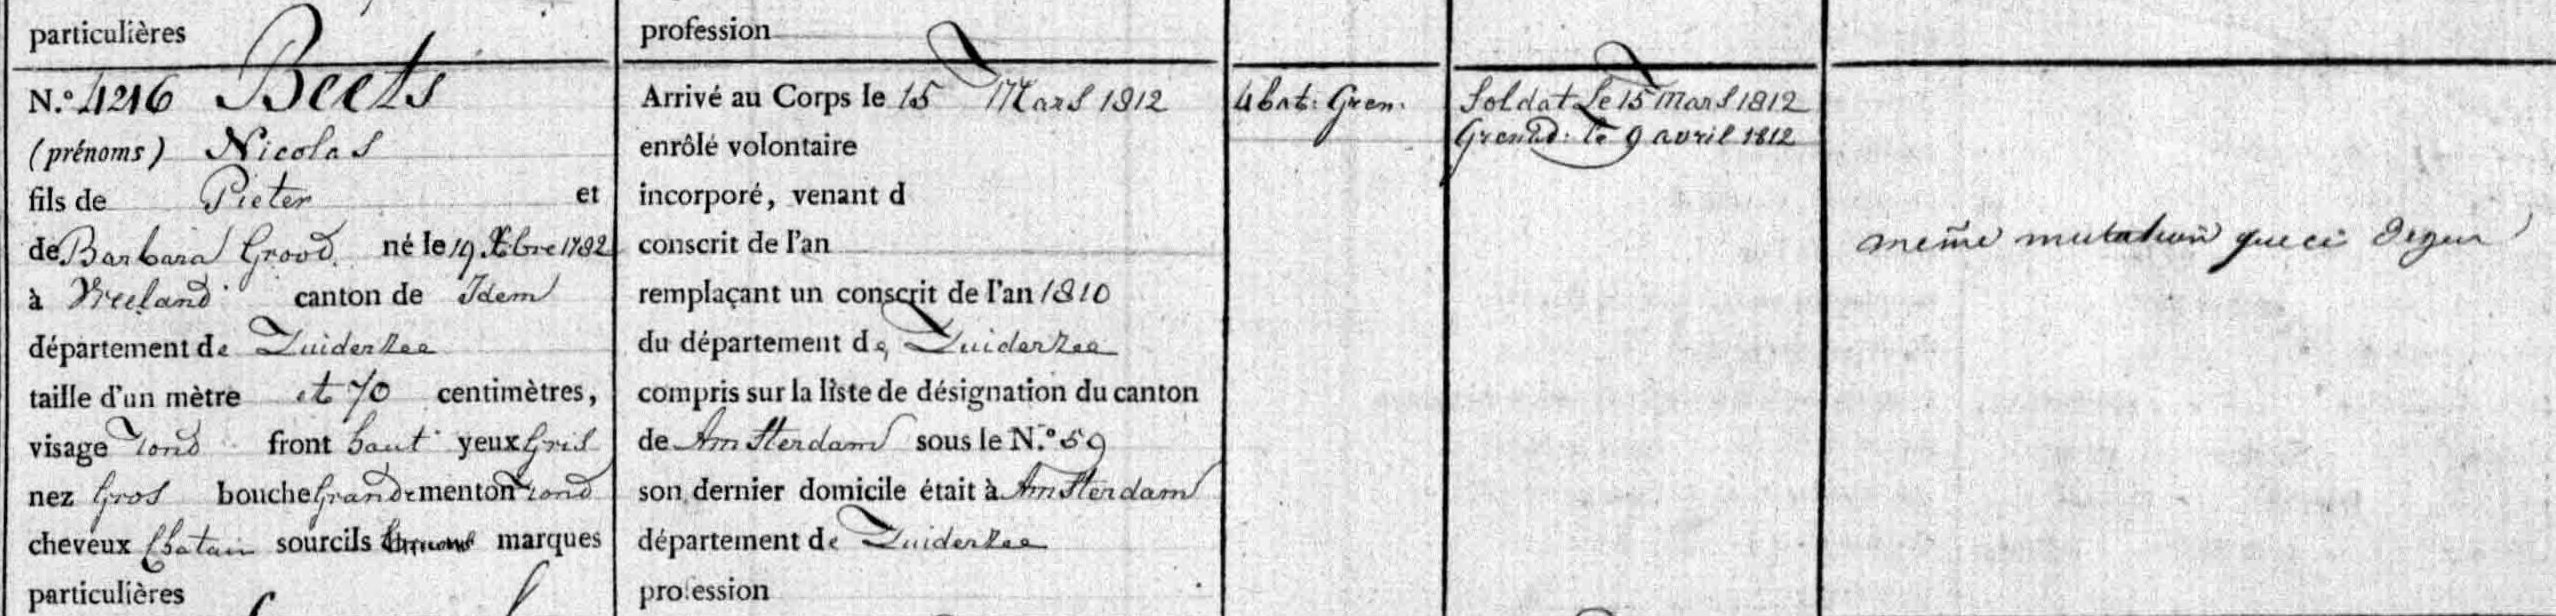 particulières
N.º 4216 Beets
(prénoms) Nicolas
fils de Pieter et
de Barbara Grood. né le 19 Xbre 1782
à Vreeland canton de Idem
département de Zuiderzee
taille d'un mètre et 70 centimètres,
visage rond front haut yeux Gris
nez Gros bouche Grande menton rond
cheveux Chatain sourcils marques
particulières
profession
Arrivé au Corps le 15 Mars 1812
enrôlé volontaire
incorporé, venant d
conscrit de l'an
remplaçant un conscrit de l'an 1810
du département de Zuiderzee
compris sur la liste de désignation du canton
de Amsterdam sous le N.º 59
son dernier domicile était à Amsterdam
département de Zuiderzee
profession
4 bat: Gren:
Soldat Le 15 Mars 1812
Grenad: le 9 avril 1812
même mutation que ci